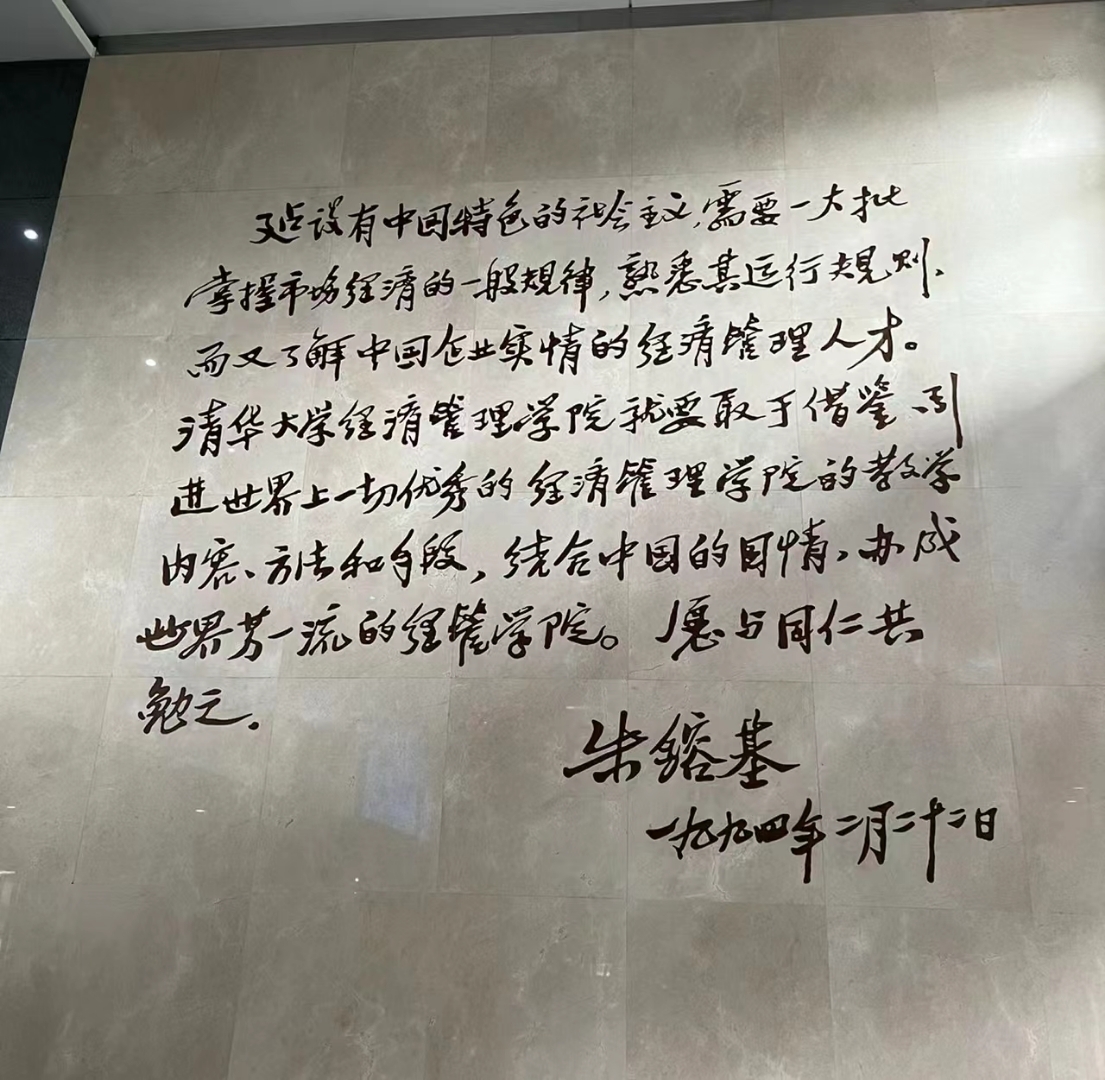 建设有中国特色的社会主义，需要一大批
掌握市场经济的一般规律，熟悉其运行规则、
而又了解中国企业实情的经济管理人才。
清华大学经济管理学院就要敢于借鉴、引
进世界上一切优秀的经济管理学院的教学
内容、方法和手段，结合中国的国情，办成
世界第一流的经管学院。愿与同仁共
勉之。
朱镕基
一九九四年二月二十二日